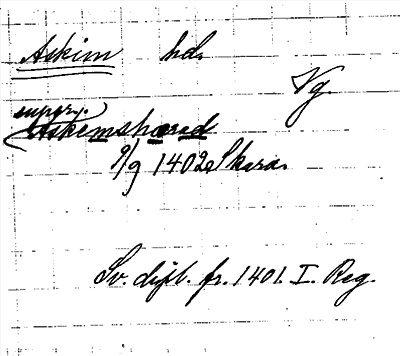 Askim hd.
Vg.
(uppr.)
Askemshærad
9/9 1402 Skara.
Sv. dipl. fr. 1401. I. Reg.